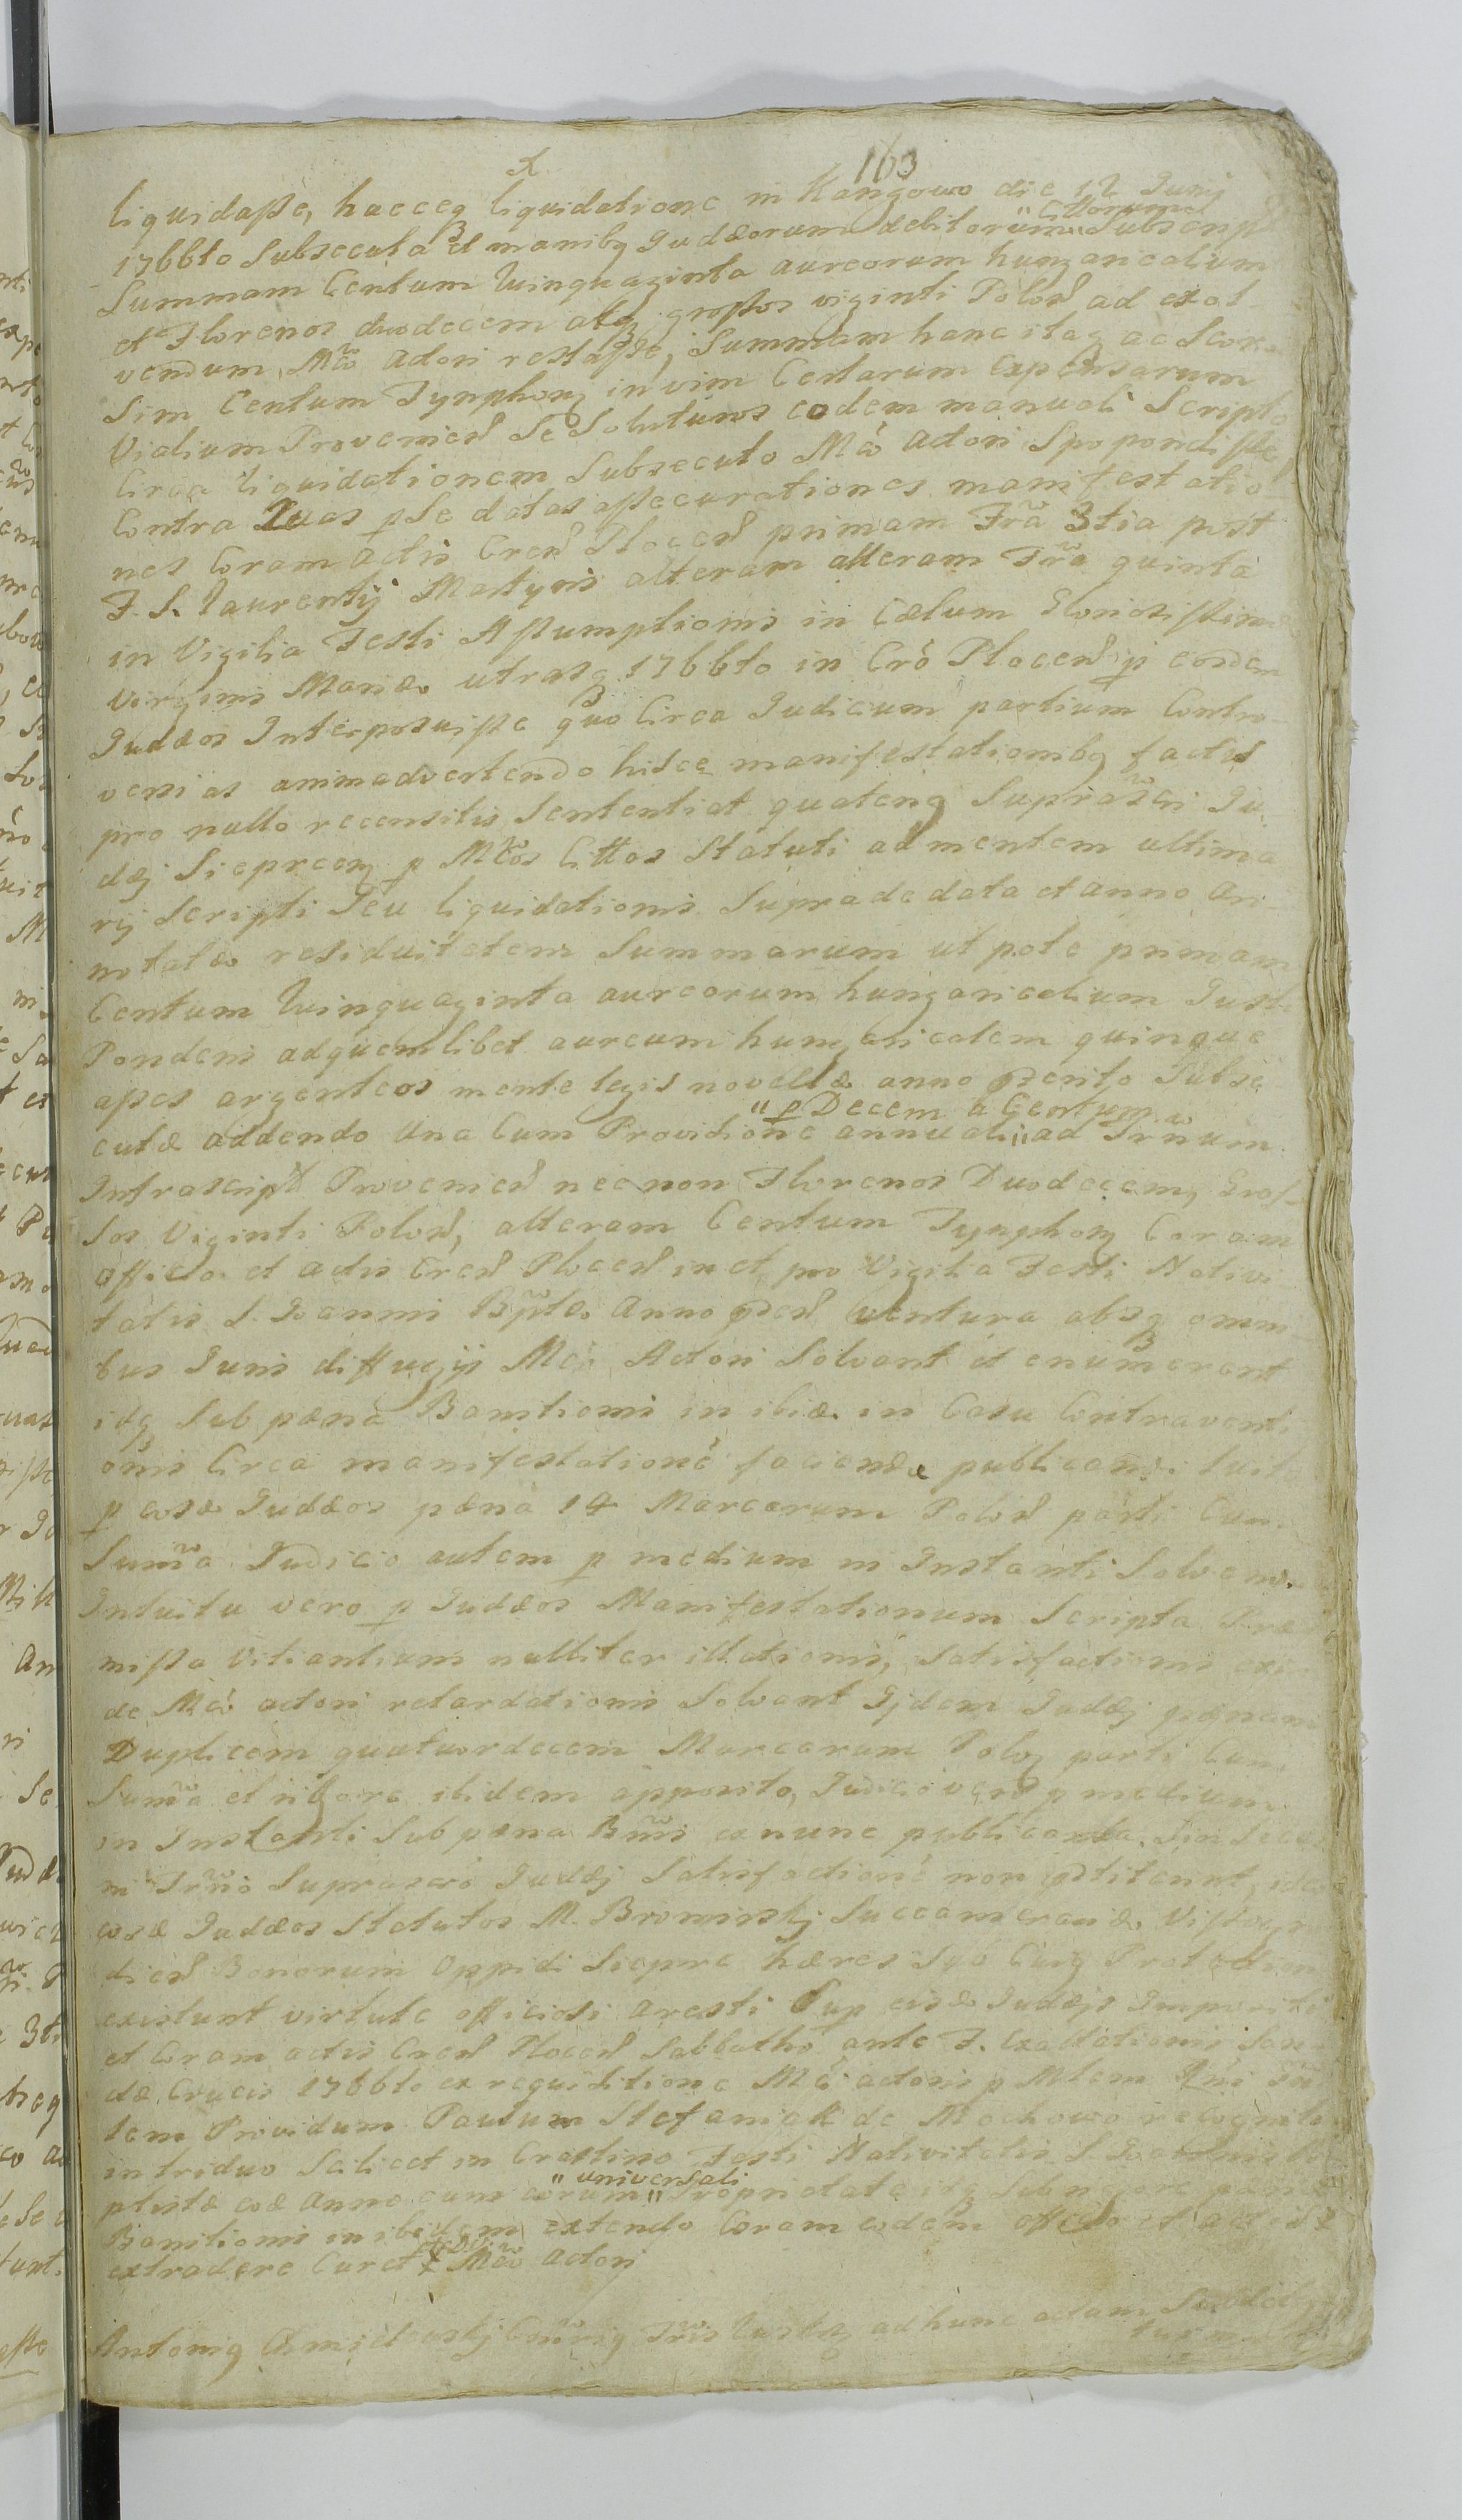 163
liquidasse, haeceq liquidatione in Kangowo die 12 Junij
1766to Subsecuta et manibq Judæorum debitorum "Cittorum" Subscrip
Summam Centum Quinquaginta aureorum hungaricalium
et Florenos duodecem atq grossos viginti Polon ad exol
vendum Mco Actori restasse, Summam hanc itaq ac Seor
sim Centum Tynphonq in vim Certarum Expensarum
Vialium Provenien Se Soluturos eodem manuali Scripto
Circa liquidationem Subsecuto Mco Actori Spopondisse
Contra Quas p Se datas assecurationes manifestatio
nes Coram Actis Cren Plocen primam Fra 3tia post
F. S. Laurentij Martyris alteram alteram Fra quinta
in Vigilia Festi Assumptionis in Cælum Gloriosissimæ
Virginis Mariæ utrasq 1766to in Cro Plocen p eosdem
Judæos Interposuisse quo Circa Judicium partium Contro-
versias animadvertendo hisce manifestationibq factis
pro nullo recensitis Sententiat quatenq Suprascri Ju-
dæj Siepreenq p Mcos Cittos Statuti ad mentem ultima
rij Scripti Seu liquidationis Supra de data et anno an-
notatæ residuitatem Summarum utpote primam
Centum Quinquaginta aureorum hungaricalium Just
Ponderis adquemlibet aureum hungaricalem quinque
asses argenteos mente legis novellæ anno præito Subse
cutæ addendo Una Cum Providione annuali "p Decem a Centum" ad Trnum
Infrascript Provenien necnon Florenos Duodecem, Gros-
sos Viginti Polon, alteram Centum Tynphonq Coram
officio et actis Cren Plocen in et pro Vigilia Festi Nativi
tatis S. Joannis Bptæ Anno præs Ventura absq omni
bus Juris diffugijs Mco Actori Solvant et enumerant
idq Sub pæna Banitionis in ibiæ in Casu Contraventi
onis Circa manifestatione faciendæ publicandi luit
p eosd Judæos pæna 14 Marcarum Polon parti Cum
Summa Judicio autem p medium in Instanti Solvend
Intuitu vero p Judæos Manifestationum Scripta Præ
missa Vitiantium nulliter illationis, Satisfactionis exin
de Mco actori retardationis Solvant Ijdem Judæj pænam
Duplicem quatuordecem Marcarum Polonq parti Cum
Summa et rigore ibidem apposito, Judicio vero p medium
in Instanti Sub pæna Bnnis ex nunc publicanda, Sin Secus
in Trno Suprascro Judæj Satisfactione non præstiterint, ideo
eosd Judæos Statutos M. Bromirskj Succamerariæ Vissogro
dien Bonorum Oppidi Siepre hæres Sqo Cuiq Protectione
existunt virtute officiosi aresti Sup eisd Judæis Impositi
et Coram actis Cren Plocen Sabbatho ante F. Exaltationis San
ctæ Crucis 1766to ex requisitione Mci actoris p Mlem
tem Providum Paulum Stefaniak de Mochowo recogniti
intriduo Scilicet in Crastino Festi Nativitatis S. Joannis Ba
ptistæ eod Anno cum eorum "universali" Proprietate idq Sub rigore pænæ
Banitionis in ibidem extenso Coram eodem officio et actis
extradere Curet Mco Actori
Antoniq Chmielewskj Cmriq Tris Justq ad hunc actum